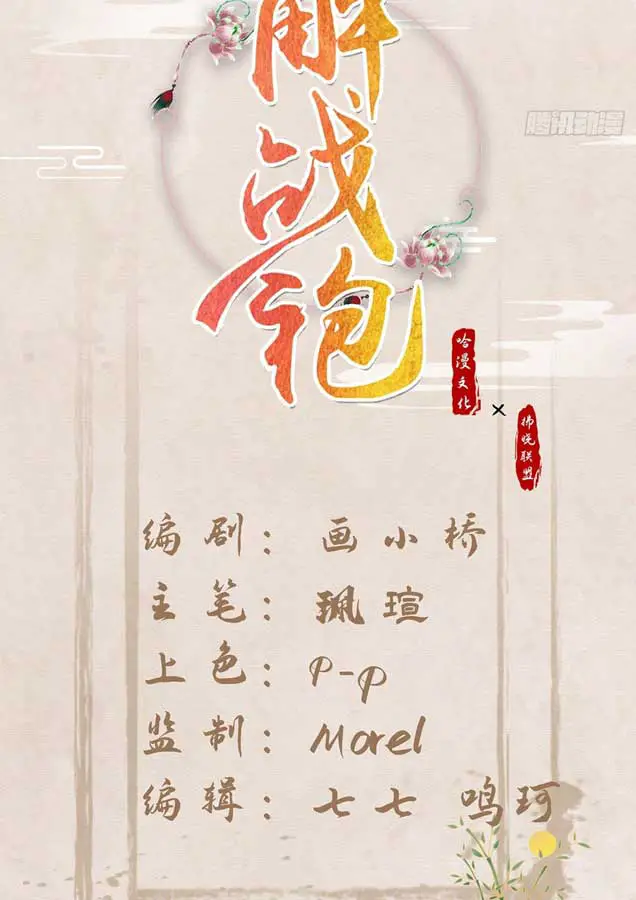 解战袍
腾讯动漫
哈漫文化
×
拂晓联盟
编剧：画小桥
主笔：珮瑄
上色：p-p
监制：Morel
编辑：七七 鸣珂